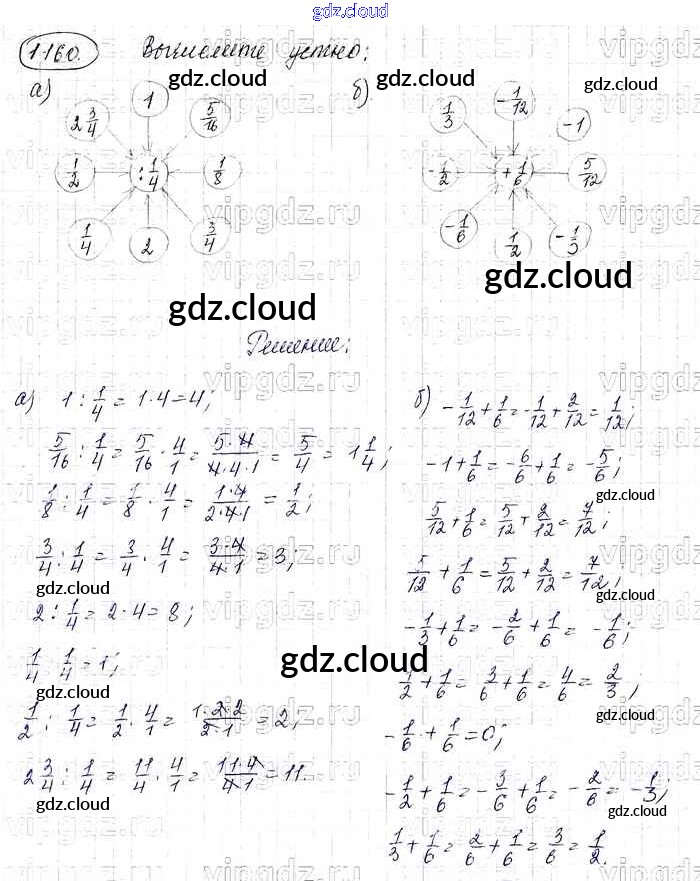 gdz.cloud
1160. Вычислите устно:
gdz.cloud gdz.cloud gdz.cloud
а) 2 3/4 1 5/16 б) 1/3 -1/12 -1
1/2 : 1/4 1/8 -1/2 + 1/6 5/12
1/4 2 3/4 -1/6 1/2 -1/3
gdz.cloud
gdz.cloud
Решение:
а) 1 : 1/4 = 1·4 = 4;
5/16 : 1/4 = 5/16 · 4/1 = 5·4/4·4·1 = 5/4 = 1 1/4;
1/8 : 1/4 = 1/8 · 4/1 = 1·4/2·4·1 = 1/2;
3/4 : 1/4 = 3/4 · 4/1 = 3·4/4·1 = 3;
gdz.cloud
2 : 1/4 = 2·4 = 8;
1/4 : 1/4 = 1;
gdz.cloud
1/2 : 1/4 = 1/2 · 4/1 = 1·2·2/2·1 = 2;
2 3/4 : 1/4 = 11/4 · 4/1 = 11·4/4·1 = 11.
gdz.cloud
б) -1/12 + 1/6 = -1/12 + 2/12 = 1/12;
-1 + 1/6 = -6/6 + 1/6 = -5/6;
gdz.cloud
5/12 + 1/6 = 5/12 + 2/12 = 7/12;
5/12 + 1/6 = 5/12 + 2/12 = 7/12;
gdz.cloud
-1/3 + 1/6 = -2/6 + 1/6 = -1/6;
1/2 + 1/6 = 3/6 + 1/6 = 4/6 = 2/3;
gdz.cloud
-1/6 + 1/6 = 0;
-1/2 + 1/6 = -3/6 + 1/6 = -2/6 = -1/3;
gdz.cloud
1/3 + 1/6 = 2/6 + 1/6 = 3/6 = 1/2.
vipgdz.ru